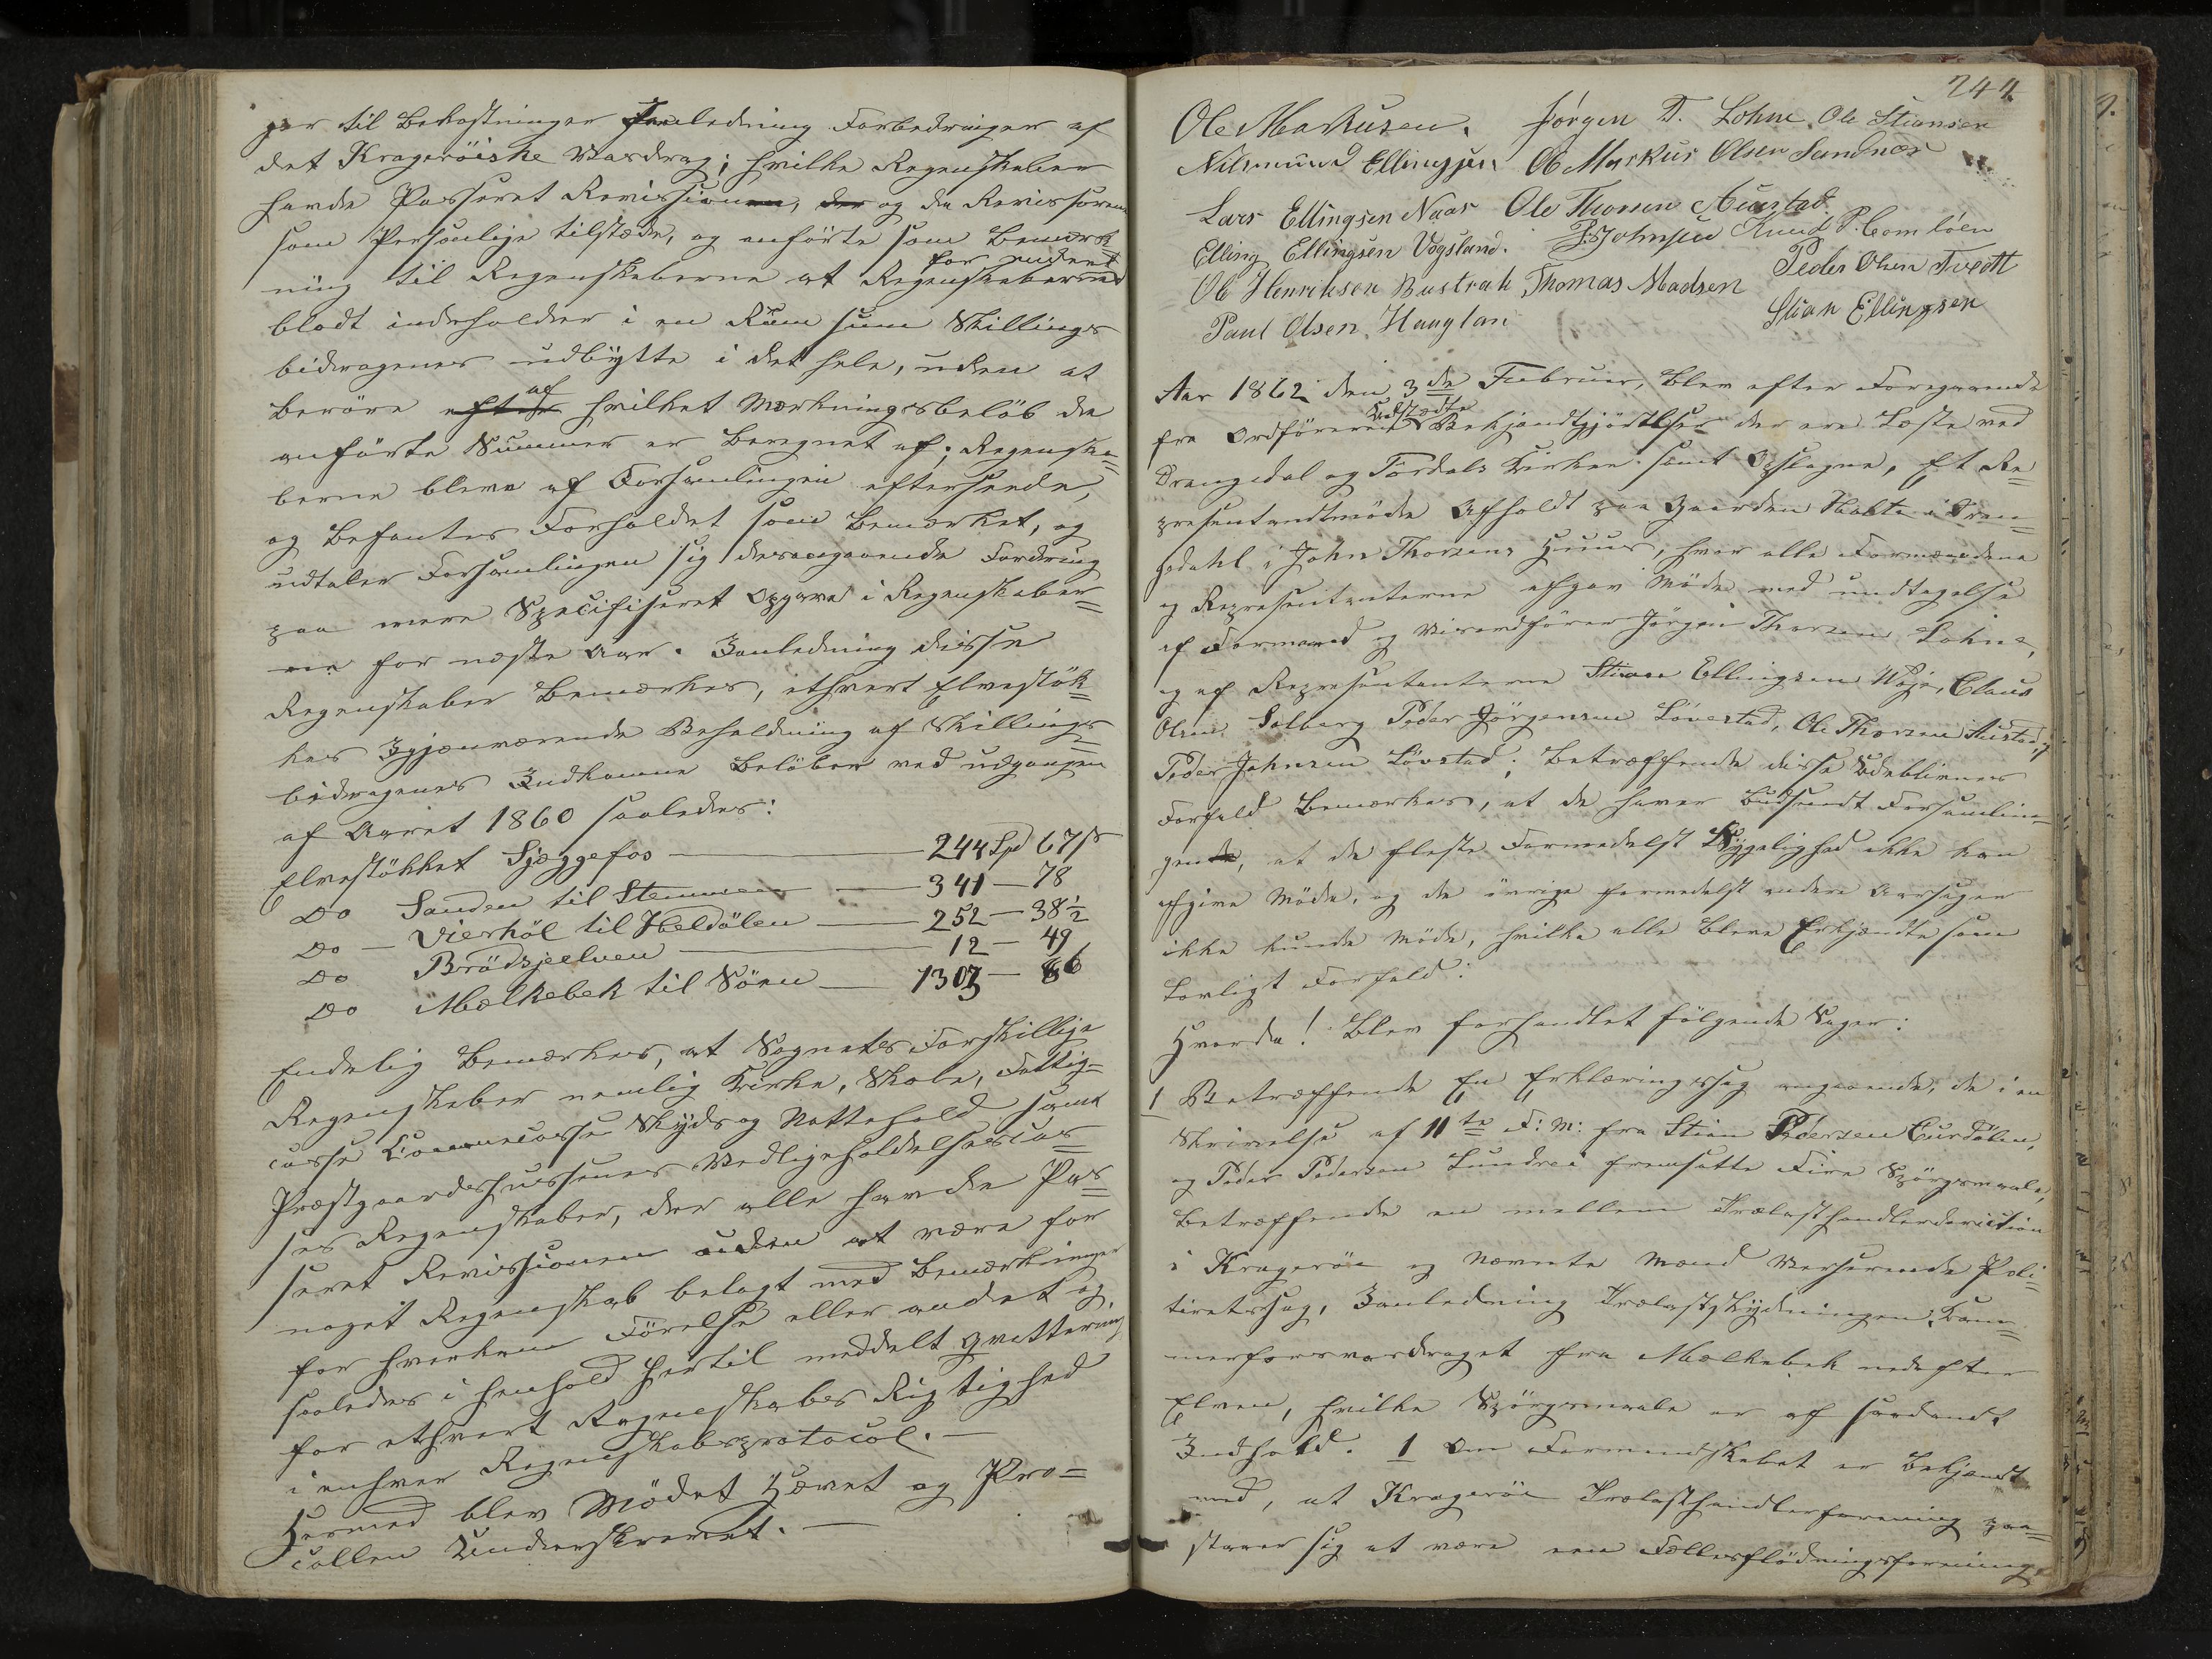 ger til Bekostninger Foranledning Forbedringer af
det Kragerøiske Vasdrag; hvilke Regenskaber
havde Passeret Revissionen, der og da Revissorerne
som Personlige tilstæde, og anførte som Bemærk=
ning til Regenskaberne at Regenskaberne
for
blodt indeholder i en Rum sum Skillings
bidragenes udbytte i det hele, uden at
Berøre af hvilket Mærkningsbeløb de
anførte Summer er Beregnet af; Regenska=
berne bleve af Forsamlingen efterseede,
og Befantes Forholdet som Bemærket, og
udtaler Forsamlingen sig desangaaende Fordring
paa mere Specifiseret Opgave i Regenskaber=
ne for næste Aar. Ianledning disse
Regenskaber Bemærkes, ethvert Elvestøk=
kes Igjenværende Beholdning af Skillings=
bidragenes Indkomne Beløber ved udgangen
af Aaret 1860 saaledes:
Elvestøkket Sjæggefos — 244 Spd 67 s
Do Sanden til Stemmen — 341 — 78
Do — Vierhöl til Heldölen — 252 — 38 1/2
Do Brödsjeelven — 12 — 49
Do Mælkebek til Sören — 1303 — 86
Endelig Bemærkes, at Sognets Forskillige
Regenskaber nemlig Kirke, Skole, Fattig=
casse Communecasse Skyds og Nattehold samt
Præstgaardshussenes Vedligeholdelsescas=
ses Regenskaber, der alle havde Pas=
seret Revissionen uden at være for
noget Regenskab belagt med Bemærkninger
for hverken Förelse eller andet og,
saaledes i henhold hertil meddelt qvittering
for ethvert Regneskabes Rigtighed
i enhver Regenskabsprotocol. —
Hermed blev Mödet Hævet og Pro=
tocollen Underskrevet. —
244
Ole Markusen. Jörgen T. Lohne. Ole Stiansen
Ellingsen Ole Markus Olsen Sandnæs
Lars Ellingsen Naas Ole Thorsen Austad
Elling Ellingsen Vogsland. J. Johnsen Knud P.
Ole Henriksen Bustrak Thomas Madsen Peder Olsen Tvedtt
Paul Olsen Hauglan Stian Ellingsen
Aar 1862 den 3de Februar, Blev efter Foregaaende
fra Ordföreren Bekjendtgjørelser der ere Læste ved
udstædte
Drangedal og Tördals Kirker samt Opslagne, Et Re=
presentandtmöde Afholdt paa Gaarden Holte i Dran=
gedahl i John Thorsens Huus, hvor alle Formændene
og Representanterne afgav Möde med undtagelse
af Formand og Viseordförer Jörgen Thorsen Lohne,
og af Representanterne Stian Ellingsen Claus
Olsen Solberg Peder Jörgensen Lövstad, Ole Thorsen Austad,
Peder Johnsen Lövstad; Betræffende disse Udeblivenes
Forfald Bemærkes, at de haver Budsendt Forsamlin=
gen, at de fleste Formedelst Sygelighed ikke kan
afgive Möde, og de övrige formedelst andere Aarsager
ikke kunde möde, hvilke alle Bleve Erkjendte som
Lovligt Forfald:
Hvorda! Blev forhandlet fölgende Sager:
1 Betræffende En Erklæringssag angaaende, de i en
Skrivelse af 11te F: M: fra Stian Pedersen Curdölen,
og Peder Pedersen Lundrei fremsatte Fire Spörgsmaale,
Betræffende en mellem Trælasthandlerderection
i Krageröe og nævnte Mænd Verserende Poli=
tiretssag, Ianledning Trælastflydningen, Kam=
merforsvasdraget fra Mælkebek nedefter
Elven, hvilke Spörgsmaale er af saadandt
Indhold. 1 Om Formandskabet er Bekjendt
med, at Krageröe Trælasthandlerforening paa=
staaer sig at være een Fællesflödningsforening